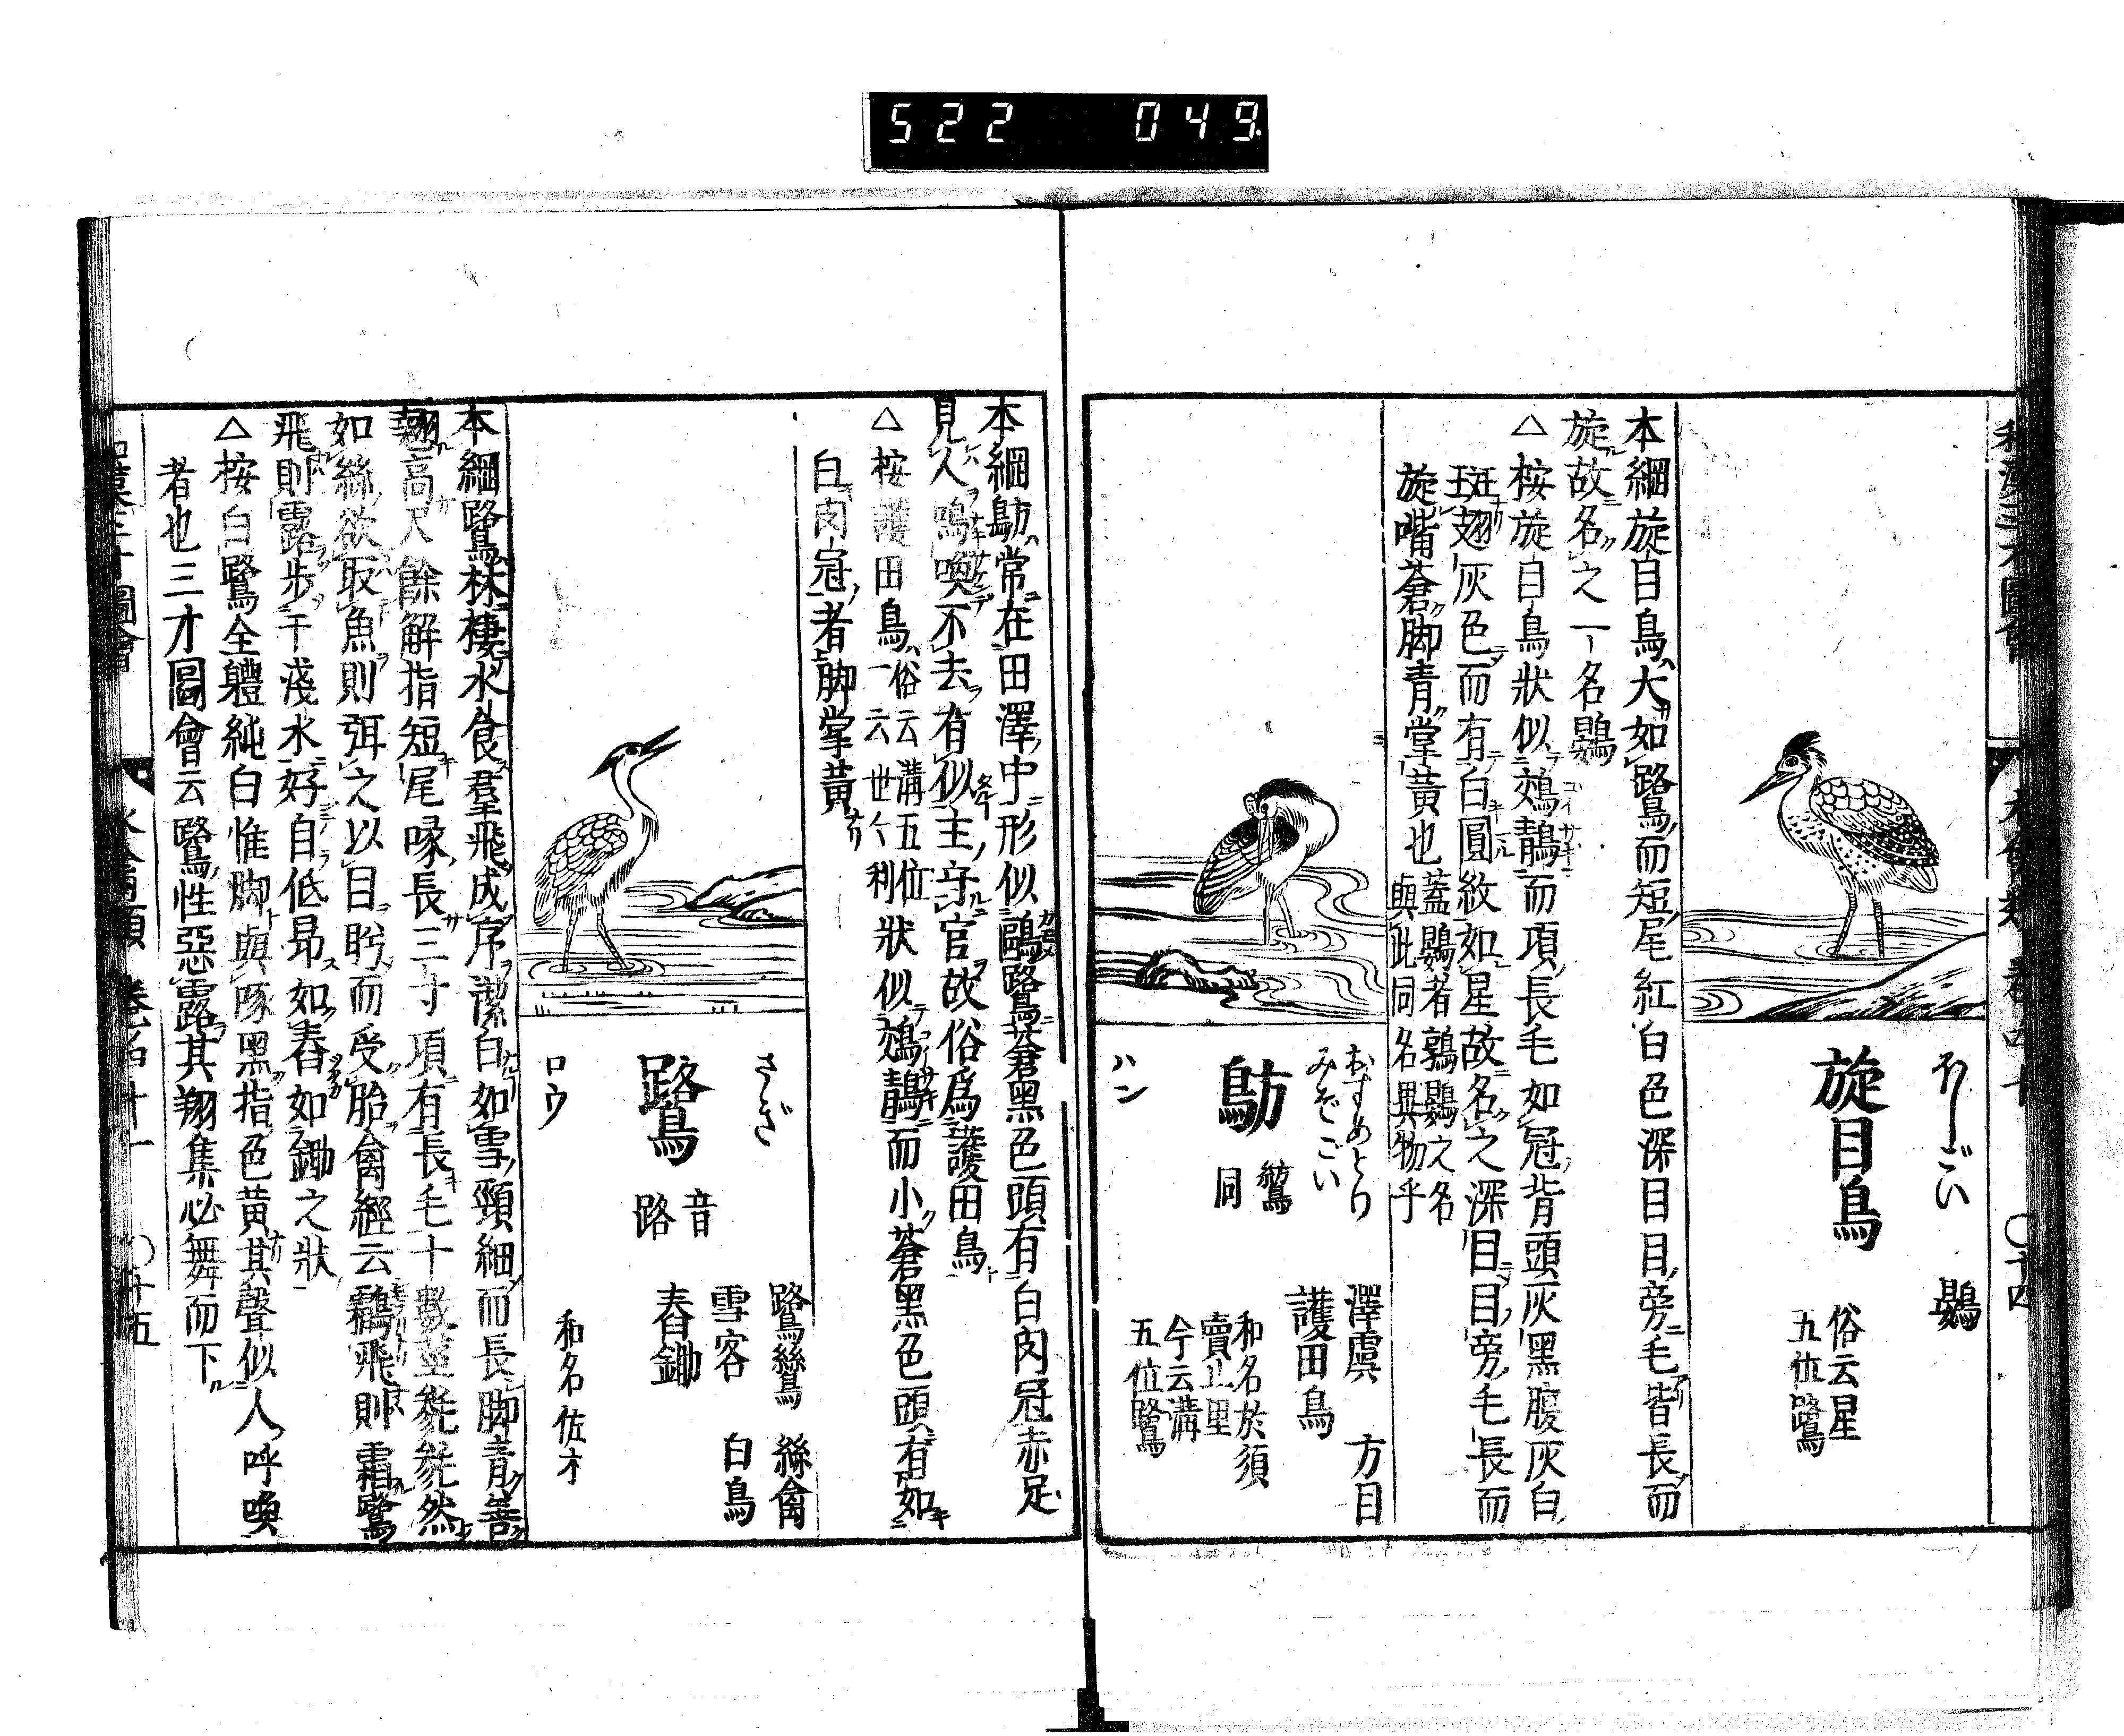 522 049
ほしごい
旋目鳥
鷃
俗云星
五位鷺
本綱旋目鳥大如鷺而短尾紅白色深目目旁毛皆長而
旋故名之一名鷃
△按旋目鳥狀似鵁鶄而項長毛如冠背頭灰黑腹灰白
斑翅灰色而有白圓紋如星故名之深目目旁毛長而
旋嘴蒼脚青掌黃也
蓋鷃者鶉鷃之名
與此同名異物乎
おすめとり
みぞごい
鴋
鶭
同
ハン
澤虞 方目
護田鳥
和名於須
賣止里
今云溝
五位鷺
本綱鴋常在田澤中形似鷗鷺蒼黑色頭有白肉冠赤足
見人鳴喚不去有似主守官故俗爲護田鳥
△按護田鳥
俗云溝五位
一云世久利
狀似鵁鶄而小蒼黑色頭有如
白肉冠者脚掌黃
さぎ
鷺
音
路
ロウ
鷺鷥 絲禽
雪客 白鳥
舂鋤
和名佐木
本綱鷺林棲水食羣飛成序潔白如雪頸細而長脚青善
翹高尺餘解指短尾喙長三寸項有長毛十數莖毿毿然
如絲欲取魚則弭之以目盻而受胎禽經云鸛飛則霜鷺
飛則露步于淺水好自低昂如舂如鋤之狀
△按白鷺全體純白惟脚與啄黑指色黃其聲似人呼喚
者也三才圖會云鷺性惡露其翔集必舞而下